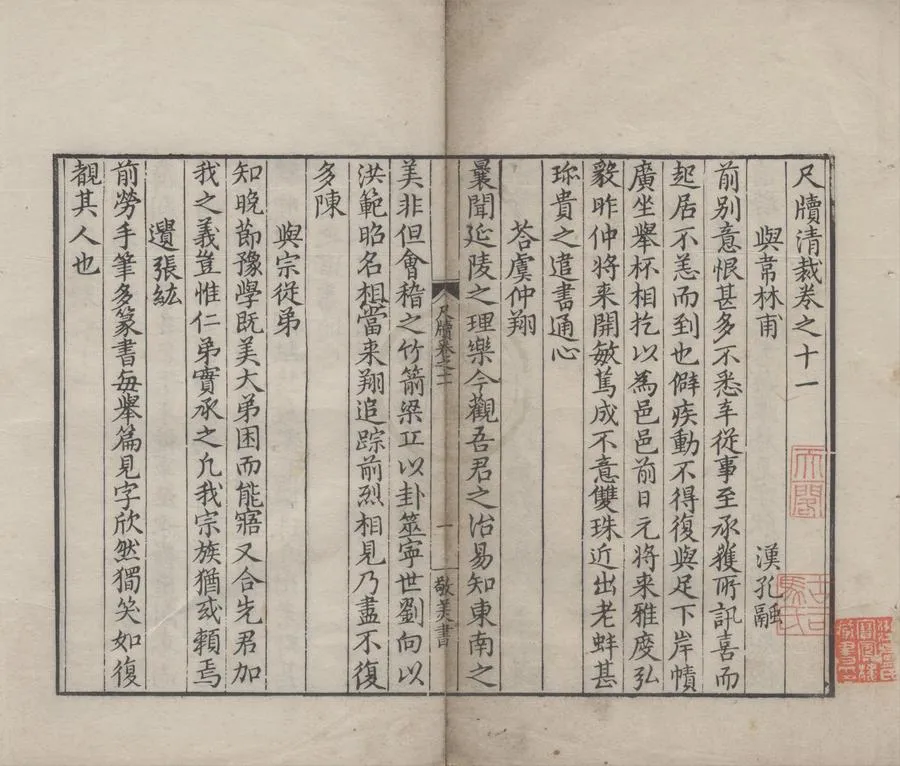 尺牘清裁卷之十一
與韋林甫 漢孔融
前別意恨甚多不悉卒從事至承獲所訊喜而
起居不恙而到也僻疾動不得復與足下岸幘
廣坐舉杯相扢以為邑邑前日元將来雅度弘
毅昨仲将来開敏篤成不意雙珠近出老蚌甚
珎貴之遣書通心
荅虞仲翔
曩聞延陵之理樂今觀吾君之治易知東南之
美非但會稽之竹箭梁丘以卦筮寧世劉向以
洪範昭名想當来翔追踪前烈相見乃盡不復
多陳
與宗従弟
知晚節豫學既美大弟困而能寤又合先君加
我之義豈惟仁弟實承之凢我宗族猶或賴焉
遺張紘
前勞手筆多篆書毎舉篇見字欣然獨笑如復
覩其人也
尺牘卷之十一
一
敬美書